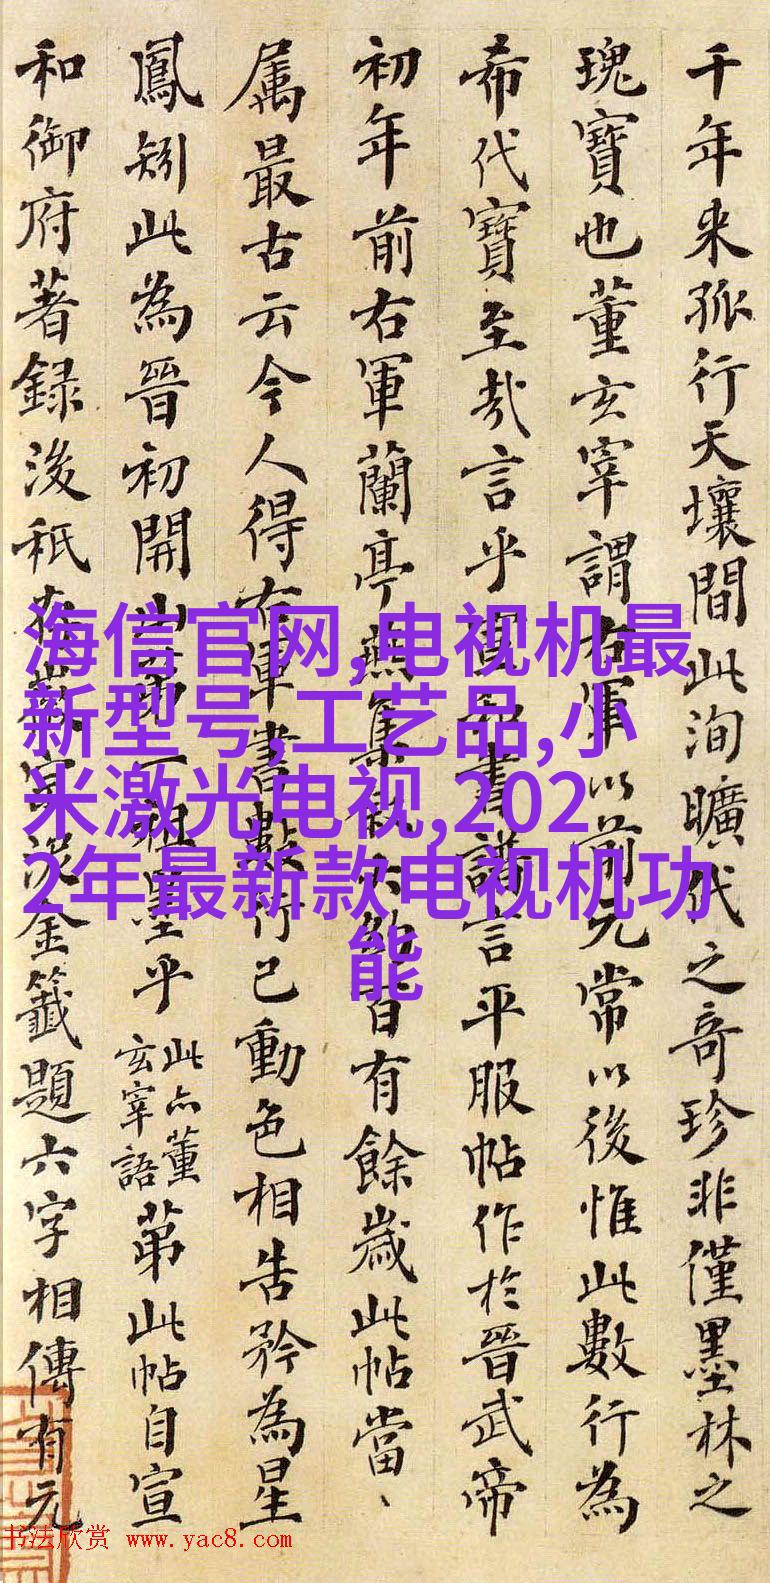 千年来孤行天壤間此洵曠代之奇珍非僅墨林之
瑰寶也董玄宰謂右軍以前元常以後惟此數行為
希代寶至哉言乎宣和書譜言平服帖作於晉武帝
初年前右軍蘭亭燕集敘大約百有餘歲此帖當、
属最古云今人得右軍書數行已動色相告矜為星
鳳矧此為晉初開山第一祖墨乎此亦董玄宰語苐此帖自宣
和御府著録後秖泥金籤題六字相傳有元
海信官网,电视机最
新型号,工艺品,小
米激光电视,202
2年最新款电视机功
能
书法欣赏 www.yac8.com